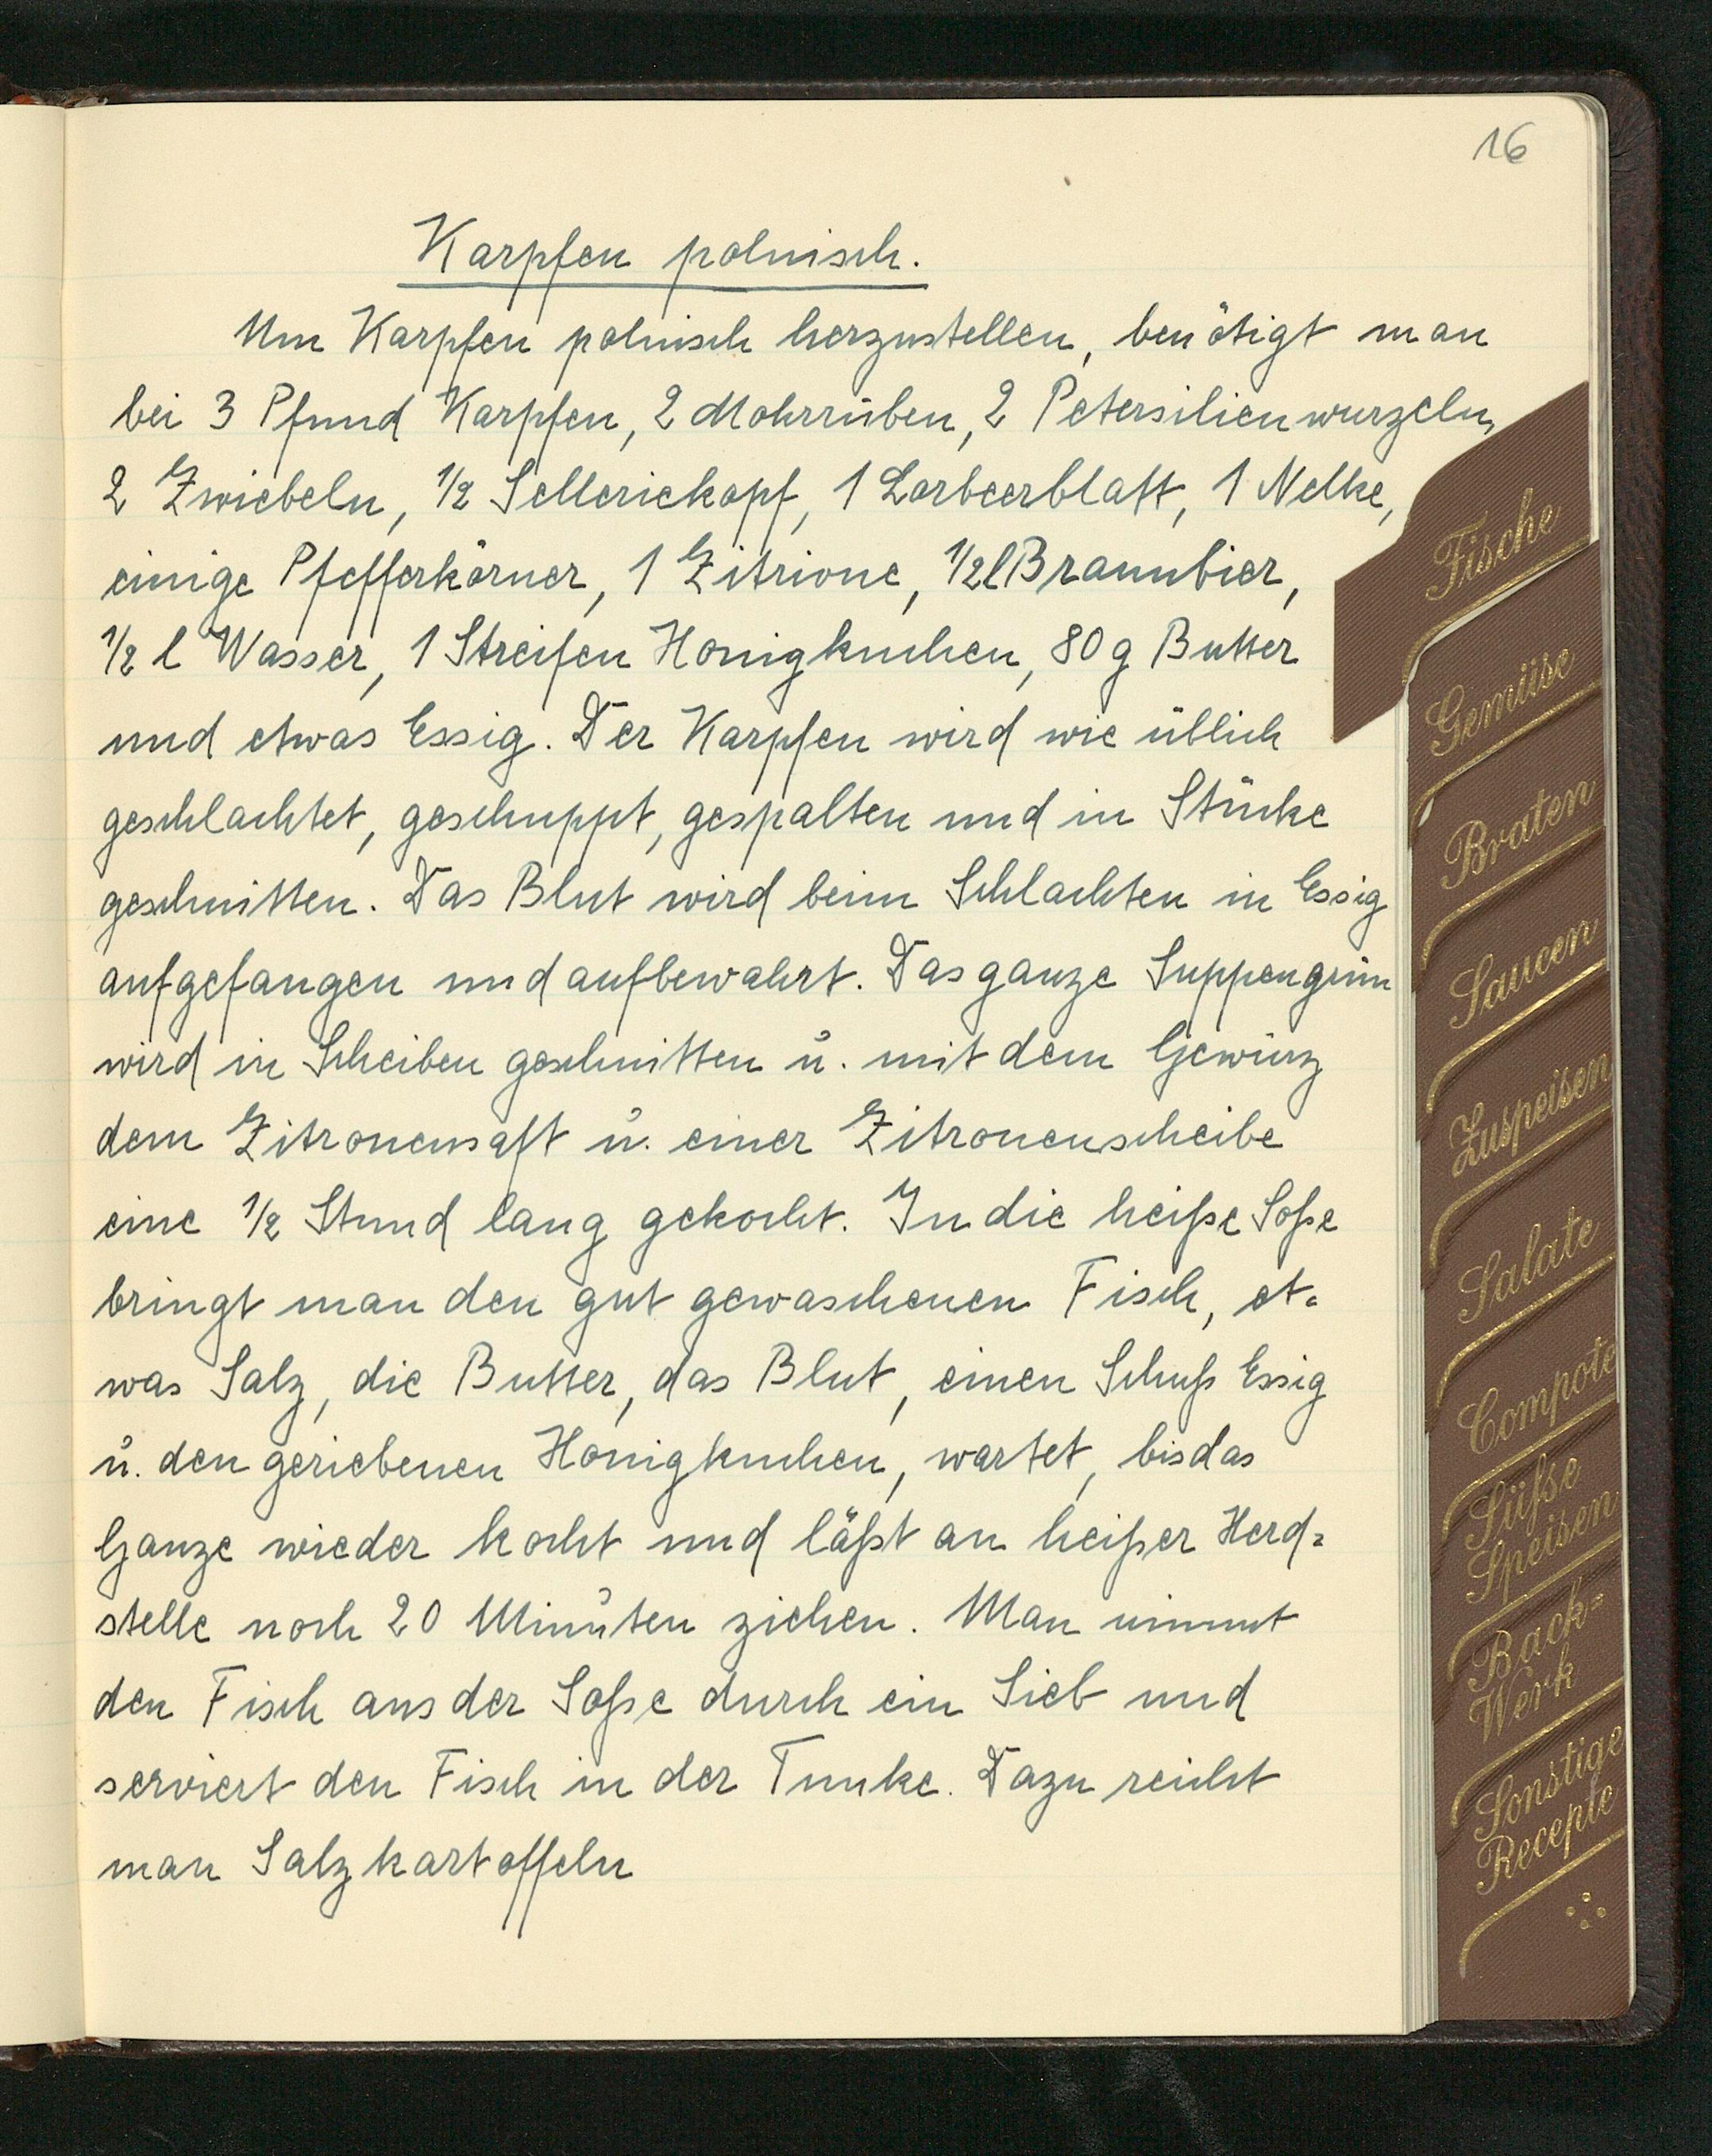 16
Karpfen polnisch.
Um Karpfen polnisch herzustellen, benötigt man
bei 3 Pfund Karpfen, 2 Mohrrüben, 2 Petersilienwurzeln,
2 Zwiebeln, 1/2 Selleriekopf, 1 Lorbeerblatt, 1 Nelke,
einige Pfefferkörner, 1 Zitrione, 1/2 l Braunbier,
1/2 l Wasser, 1 Streifen Honigkuchen, 80 g Butter
und etwas Essig. Der Karpfen wird wie üblich
geschlachtet, geschuppt, gespalten und in Stücke
geschnitten. Das Blut wird beim Schlachten in Essig
aufgefangen und aufbewahrt. Das ganze Suppengrün
wird in Scheiben geschnitten u. mit dem Gewürz
dem Zitronensaft u. einer Zitronenscheibe
eine 1/2 Stund lang gekocht. In die heiße Soße
bringt man den gut gewaschenen Fisch, et-
was Salz, die Butter, das Blut, einen Schuß Essig
u. den geriebenen Honigkuchen, wartet, bis das
Ganze wieder kocht und läßt an heißer Herd-
stelle noch 20 Minuten ziehen. Man nimmt
den Fisch aus der Soße durch ein Sieb und
serviert den Fisch in der Tunke. Dazu reicht
man Salzkartoffeln
Fische
Gemüse
Braten
Saucen
Zuspeisen
Salate
Compote
Süße
Speisen
Back-
Werk
Sonstige
Recepte